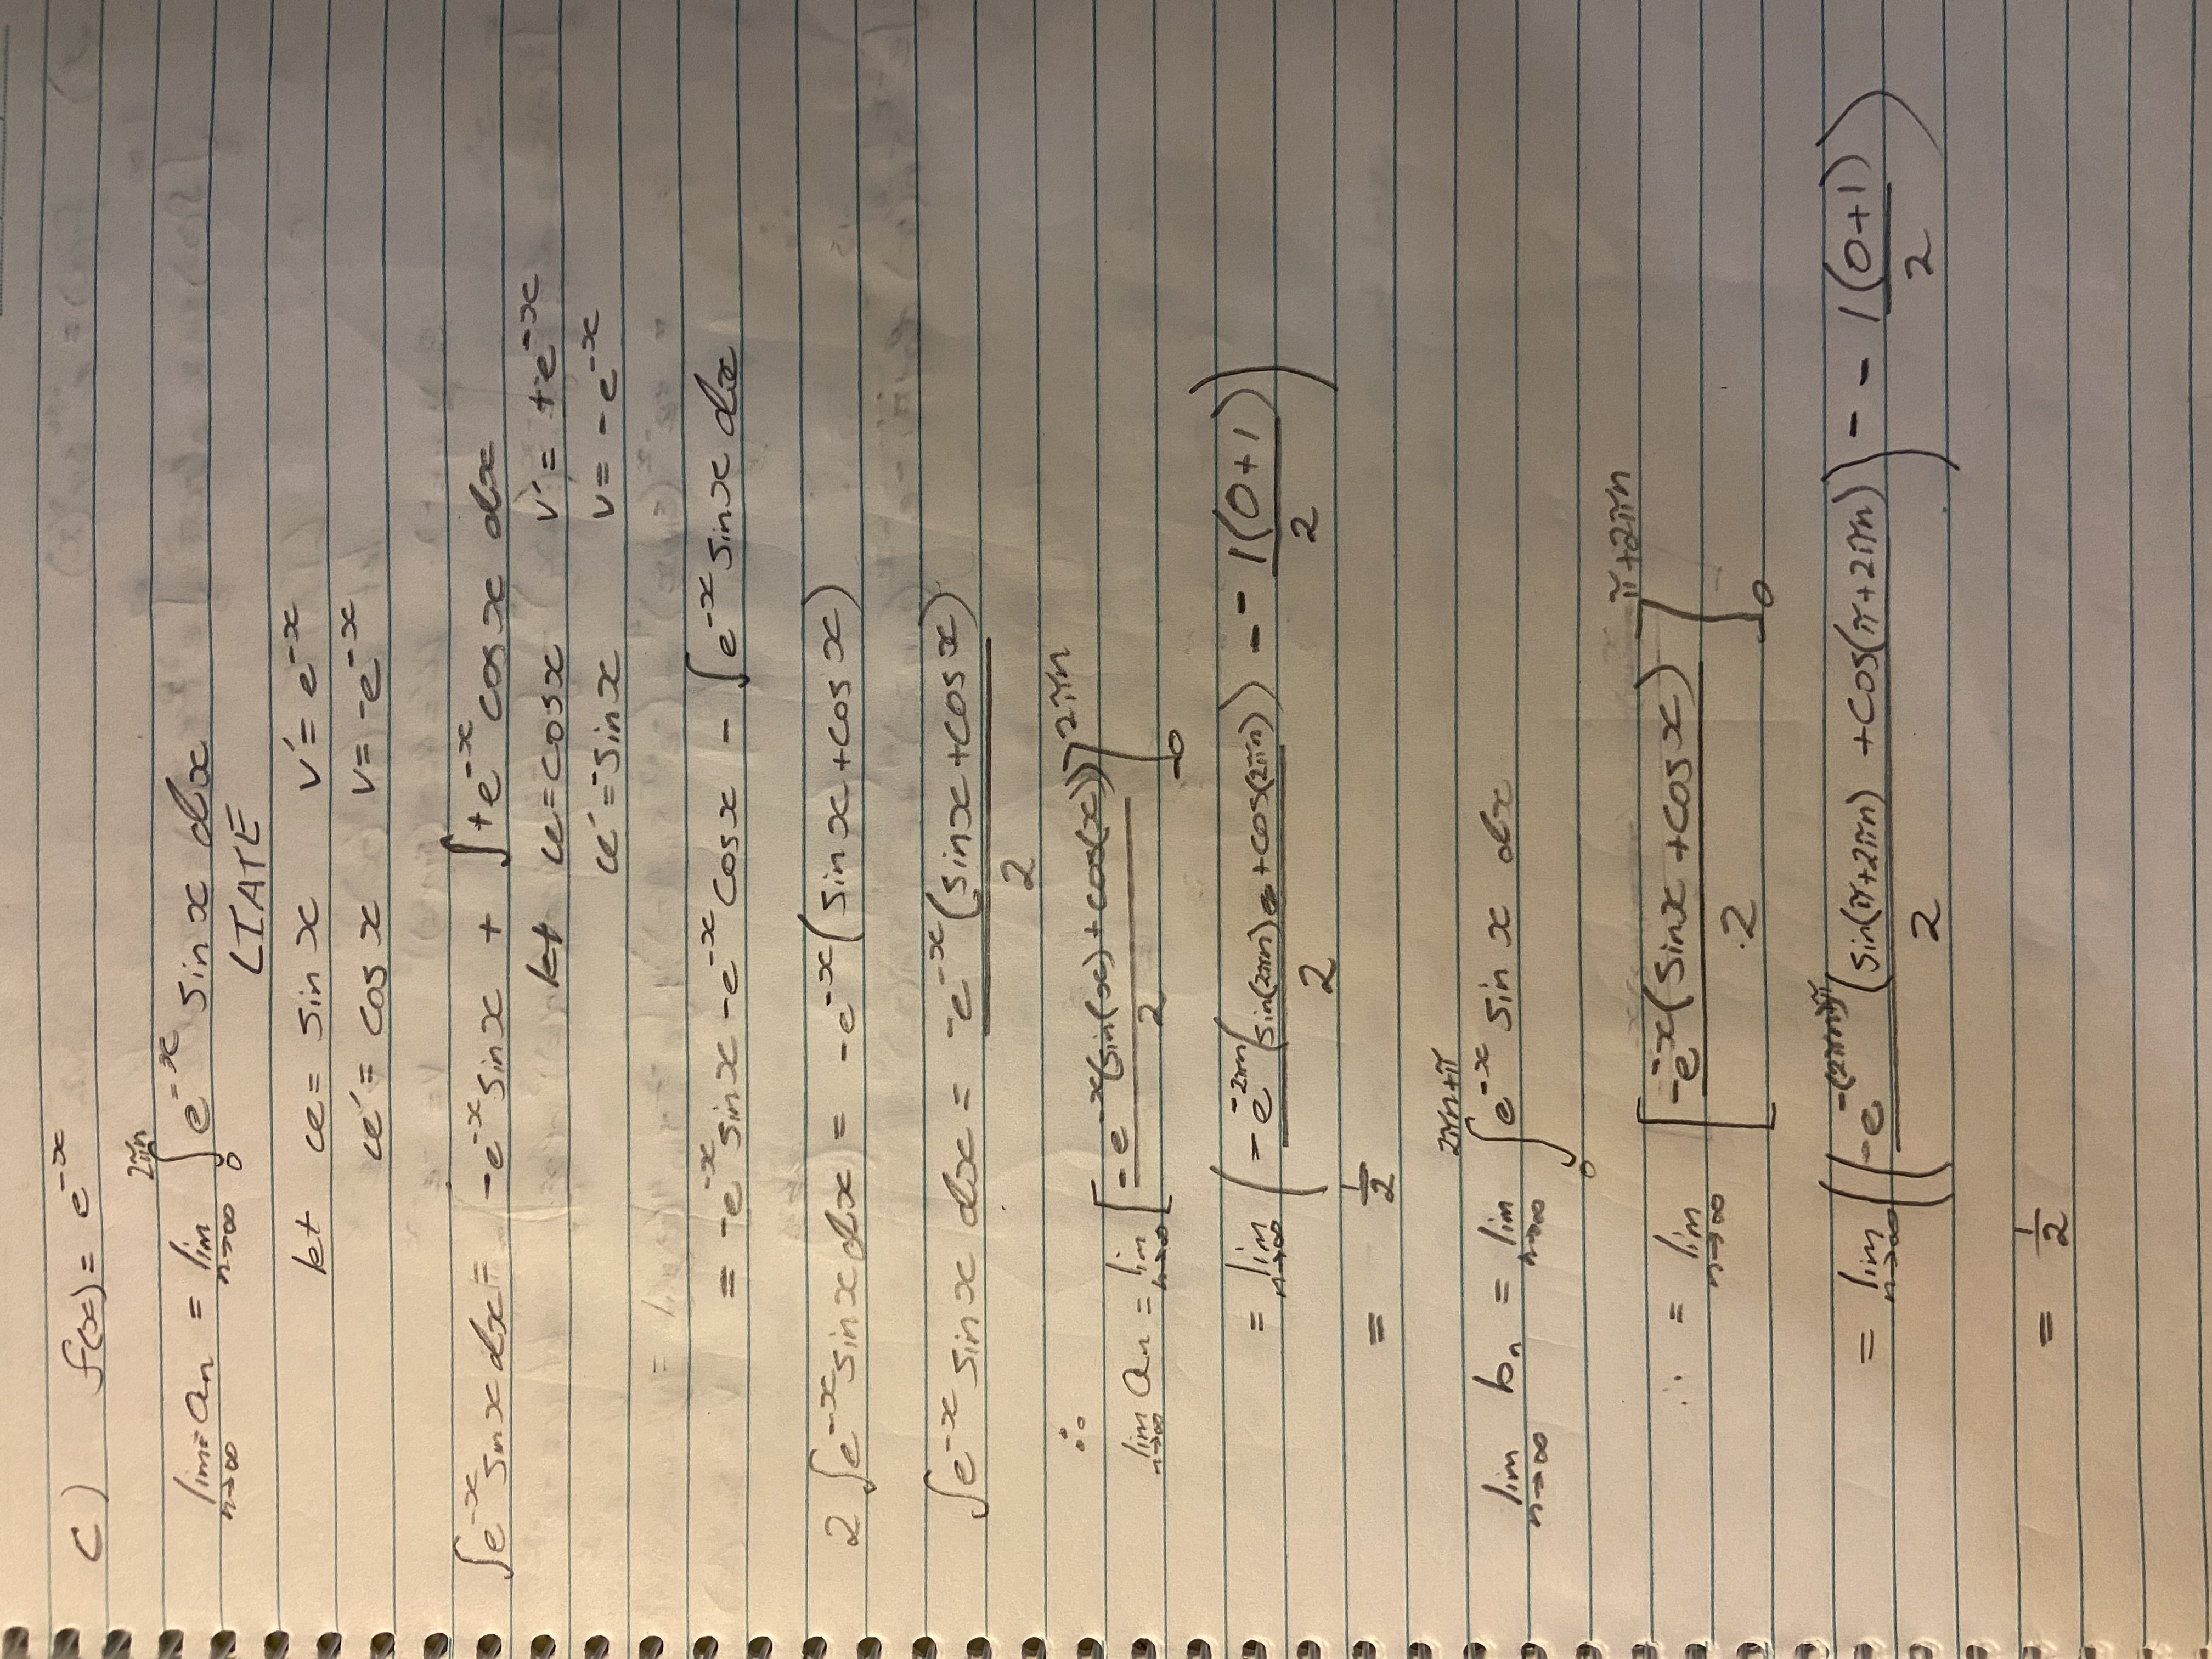 c) f(x) = e^{-x}
lim_{n→∞} a_n = lim_{n→∞} ∫_0^{2πn} e^{-x} sin x dx
LIATE
let u = sin x v' = e^{-x}
u' = cos x v = -e^{-x}
∫e^{-x} sin x dx = -e^{-x} sin x + ∫+e^{-x} cos x dx
let u = cos x v' = +e^{-x}
u' = -sin x v = -e^{-x}
= -e^{-x} sin x - e^{-x} cos x - ∫e^{-x} sin x dx
2 ∫e^{-x} sin x dx = -e^{-x}(sin x + cos x)
∫e^{-x} sin x dx = -e^{-x}(sin x + cos x) / 2
∴
lim_{n→∞} a_n = lim_{n→∞} [-e^{-x}(sin(x) + cos(x)) / 2]_0^{2πn}
= lim_{n→∞} (-e^{-2πn}(sin(2πn) + cos(2πn)) / 2 - - 1(0+1) / 2)
= 1/2
lim_{n→∞} b_n = lim_{n→∞} ∫_0^{2πn+π} e^{-x} sin x dx
∴ = lim_{n→∞} [-e^{-x}(sin x + cos x) / 2]_0^{π+2πn}
= lim_{n→∞} ((-e^{-(2πn+π)}(sin(π+2πn) + cos(π+2πn)) / 2) - - 1(0+1) / 2)
= 1/2